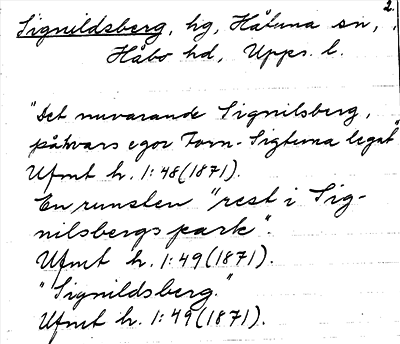 2.
Signildsberg, hg, Håtuna sn,
Håbo hd, Upps. l.
"Det nuvarande Signilsberg,
på hvars egor Forn-Sigtuna legat"
Ufmt h. 1:48 (1871).
En runsten "rest i Sig-
nilsbergs park".
Ufmt h. 1:49 (1871).
"Signildsberg."
Ufmt h. 1:49 (1871).